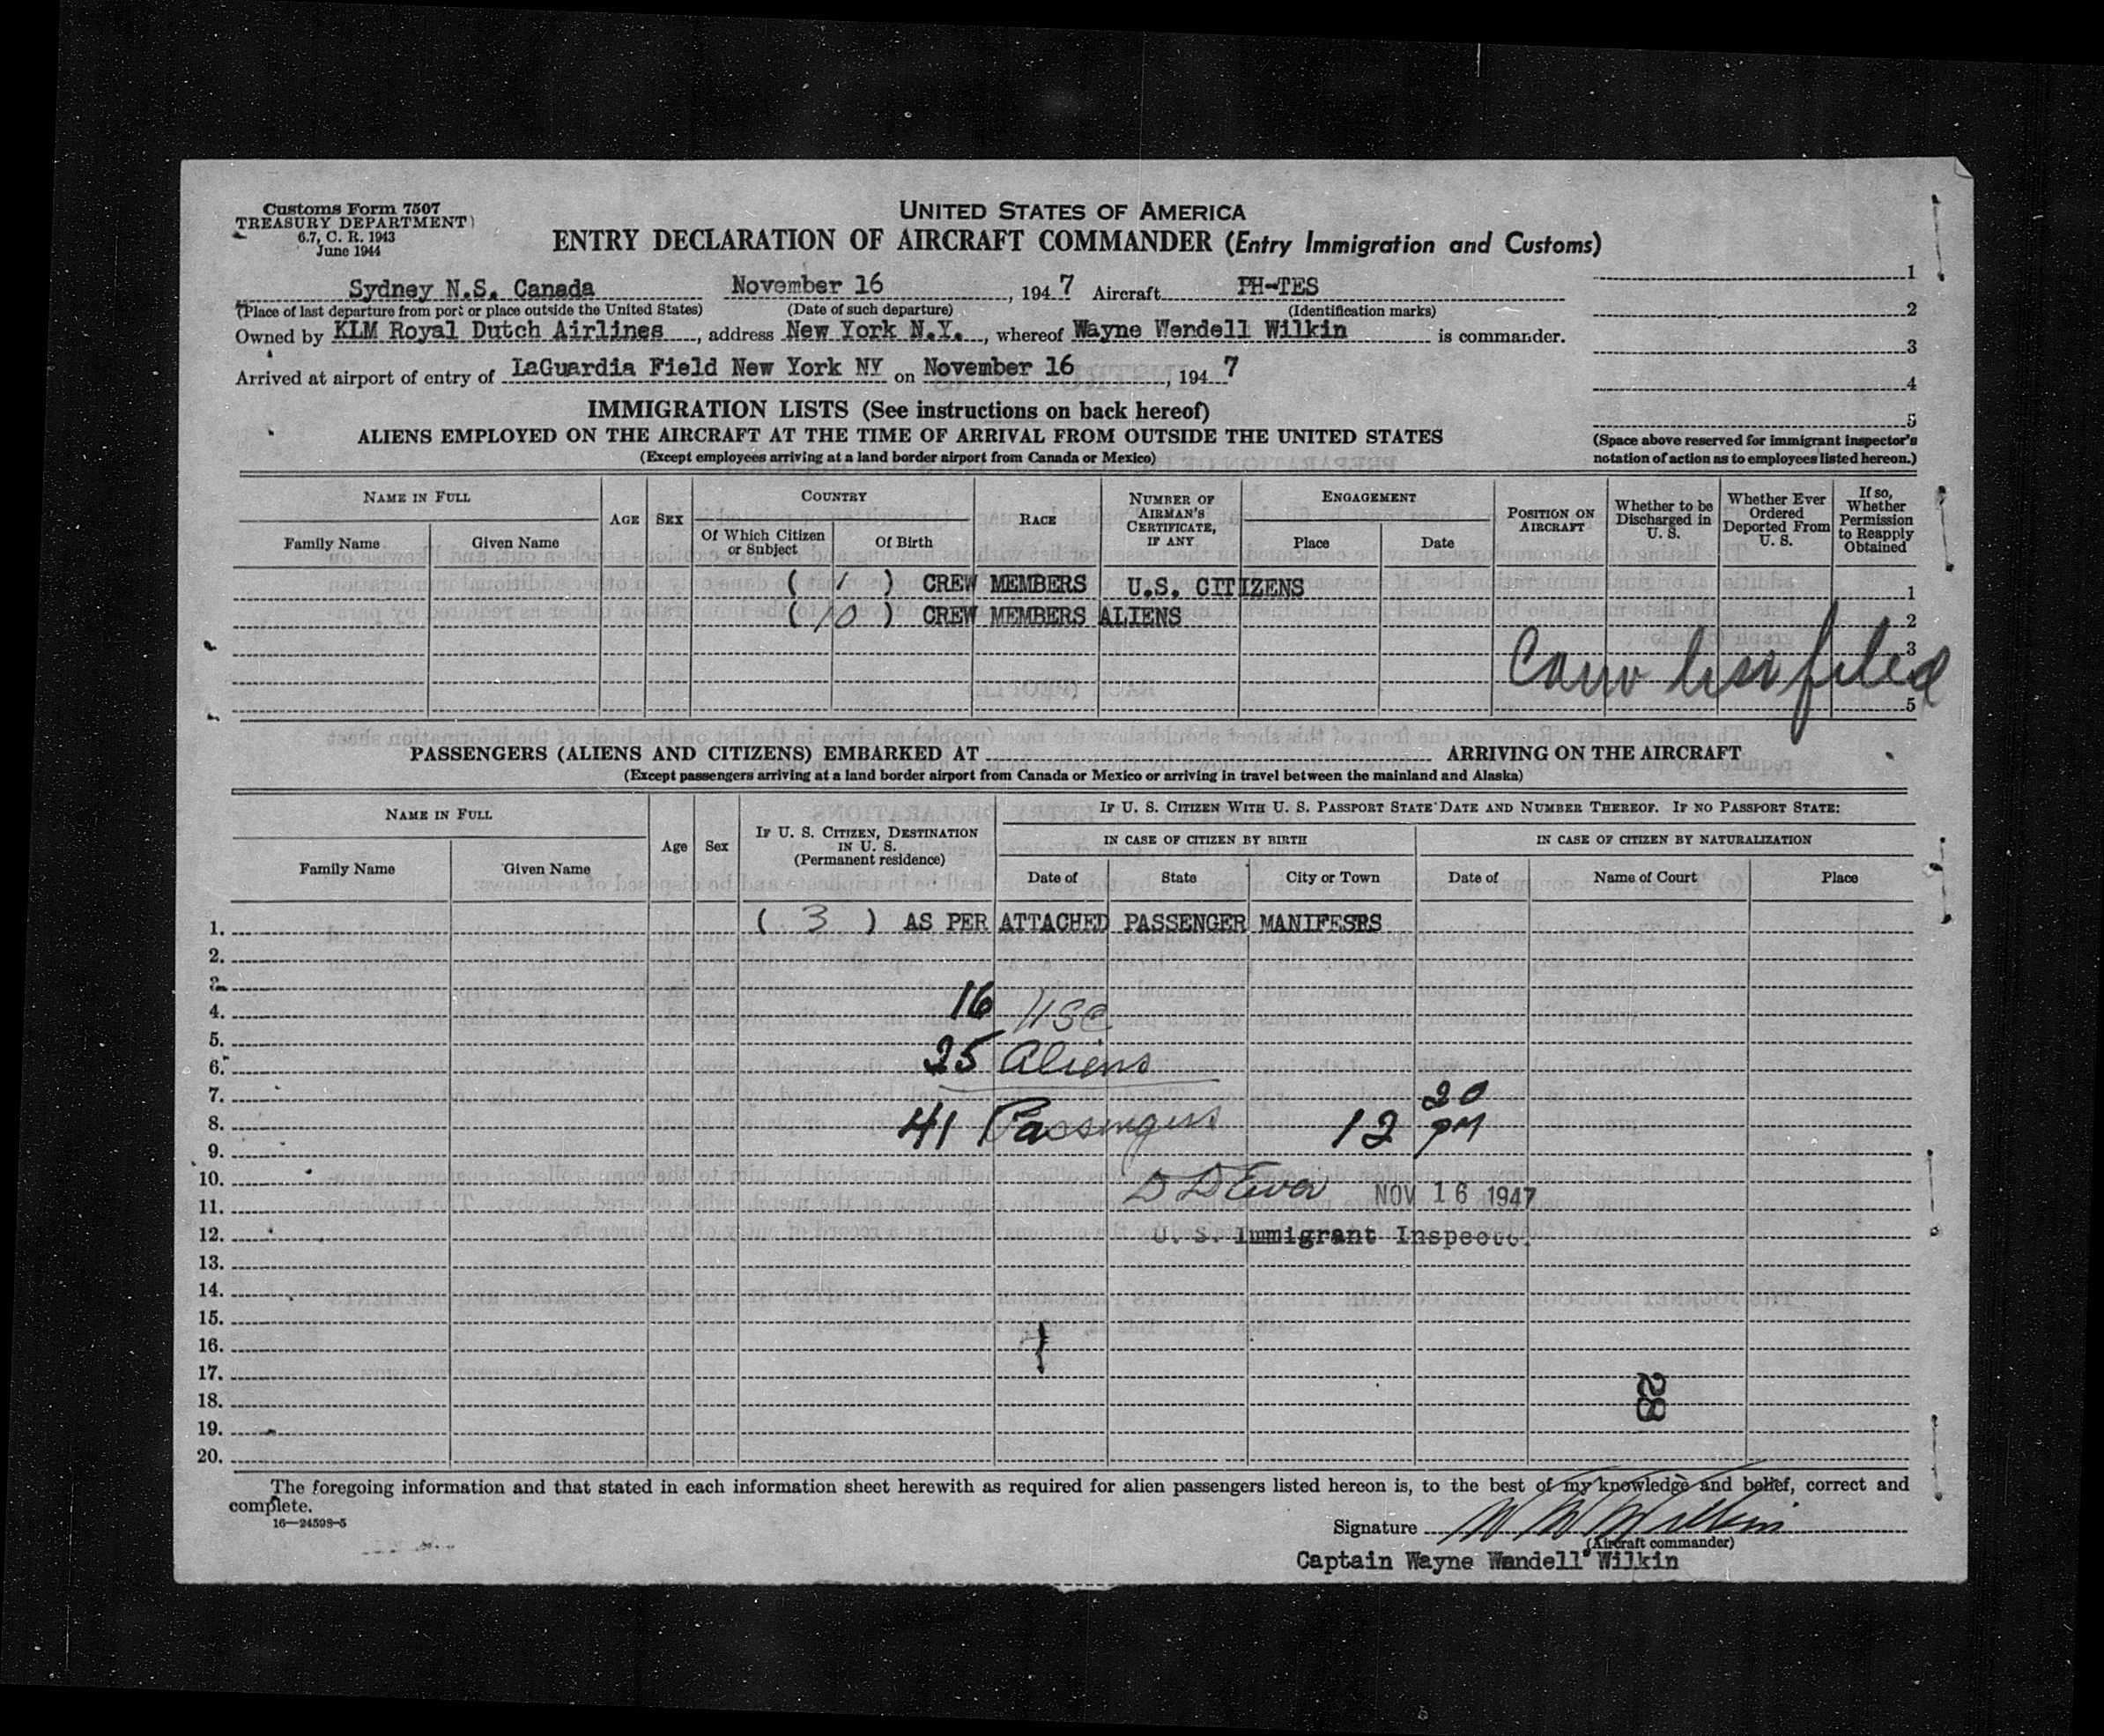 Customs Form 7507
TREASURY DEPARTMENT
6.7, C. R. 1943
June 1944
UNITED STATES OF AMERICA
ENTRY DECLARATION OF AIRCRAFT COMMANDER (Entry Immigration and Customs)
Sydney N.S. Canada November 16, 1947 Aircraft PH-TES
(Place of last departure from port or place outside the United States) (Date of such departure) (Identification marks)
Owned by KLM Royal Dutch Airlines, address New York N.Y., whereof Wayne Wendell Wilkin is commander.
Arrived at airport of entry of LaGuardia Field New York NY on November 16, 1947
1
2
3
4
5
(Space above reserved for immigrant inspector's
notation of action as to employees listed hereon.)
IMMIGRATION LISTS (See instructions on back hereof)
ALIENS EMPLOYED ON THE AIRCRAFT AT THE TIME OF ARRIVAL FROM OUTSIDE THE UNITED STATES
(Except employees arriving at a land border airport from Canada or Mexico)
NAME IN FULL
Family Name
Given Name
AGE
SEX
COUNTRY
Of Which Citizen
or Subject
Of Birth
RACE
NUMBER OF
AIRMAN'S
CERTIFICATE,
IF ANY
ENGAGEMENT
Place
Date
POSITION ON
AIRCRAFT
Whether to be
Discharged in
U. S.
Whether Ever
Ordered
Deported From
U. S.
If so,
Whether
Permission
to Reapply
Obtained
( 1 ) CREW MEMBERS U.S. CITIZENS 1
( 10 ) CREW MEMBERS ALIENS 2
3
filed
5
PASSENGERS (ALIENS AND CITIZENS) EMBARKED AT ARRIVING ON THE AIRCRAFT
(Except passengers arriving at a land border airport from Canada or Mexico or arriving in travel between the mainland and Alaska)
NAME IN FULL
Family Name
Given Name
Age
Sex
IF U. S. CITIZEN, DESTINATION
IN U. S.
(Permanent residence)
IF U. S. CITIZEN WITH U. S. PASSPORT STATE DATE AND NUMBER THEREOF. IF NO PASSPORT STATE:
IN CASE OF CITIZEN BY BIRTH
IN CASE OF CITIZEN BY NATURALIZATION
Date of
State
City or Town
Date of
Name of Court
Place
1. ( 3 ) AS PER ATTACHED PASSENGER MANIFESRS
2.
3.
4. 16 USC
5.
6. 25 Aliens
7.
8. 41 Passengers 12 20 PM
9.
10.
11. NOV 16 1947
12. U. S. Immigrant Inspector
13.
14.
15.
16.
17.
18. 28
19.
20.
The foregoing information and that stated in each information sheet herewith as required for alien passengers listed hereon is, to the best of my knowledge and belief, correct and
complete.
16—24598-5
Signature W W Wilkin
(Aircraft commander)
Captain Wayne Wandell Wilkin